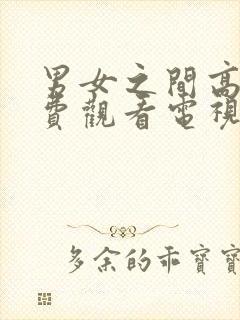 男女之間高
費觀看電視
多余的乖寶寶